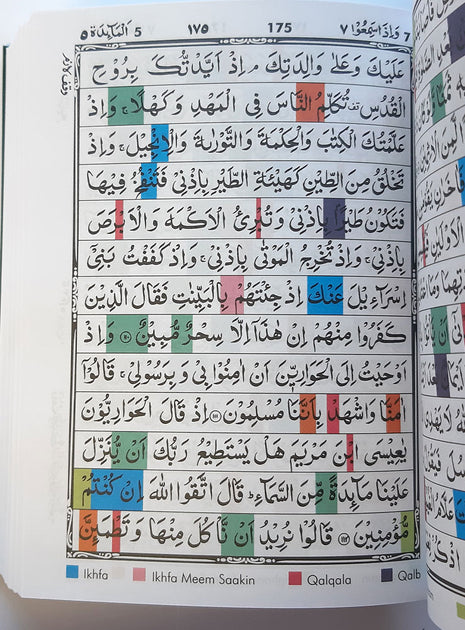 ٧ وَاِذَا سَمِعُوْا ٧ 175 ١٧٥ اَلْمَآئِدَة ٥ 5
عَلَيْكَ وَعَلٰى وَالِدَتِكَ ۘ اِذْ اَيَّدْتُّكَ بِرُوْحِ
الْقُدُسِ ۟ تُكَلِّمُ النَّاسَ فِي الْمَهْدِ وَكَهْلًا ۚ وَاِذْ
عَلَّمْتُكَ الْكِتٰبَ وَالْحِكْمَةَ وَالتَّوْرٰىةَ وَالْاِنْجِيْلَ ۚ وَاِذْ
تَخْلُقُ مِنَ الطِّيْنِ كَهَيْئَةِ الطَّيْرِ بِاِذْنِيْ فَتَنْفُخُ فِيْهَا
فَتَكُوْنُ طَيْرًۢا بِاِذْنِيْ وَتُبْرِئُ الْاَكْمَهَ وَالْاَبْرَصَ
بِاِذْنِيْ ۚ وَاِذْ تُخْرِجُ الْمَوْتٰى بِاِذْنِيْ ۚ وَاِذْ كَفَفْتُ بَنِيْٓ
اِسْرَآءِيْلَ عَنْكَ اِذْ جِئْتَهُمْ بِالْبَيِّنٰتِ فَقَالَ الَّذِيْنَ
كَفَرُوْا مِنْهُمْ اِنْ هٰذَآ اِلَّا سِحْرٌ مُّبِيْنٌ ۝١١٠ وَاِذْ
اَوْحَيْتُ اِلَى الْحَوَارِيّٖنَ اَنْ اٰمِنُوْا بِيْ وَبِرَسُوْلِيْ ۚ قَالُوْٓا
اٰمَنَّا وَاشْهَدْ بِاَنَّنَا مُسْلِمُوْنَ ۝١١١ اِذْ قَالَ الْحَوَارِيُّوْنَ
يٰعِيْسَى ابْنَ مَرْيَمَ هَلْ يَسْتَطِيْعُ رَبُّكَ اَنْ يُّنَزِّلَ
عَلَيْنَا مَآئِدَةً مِّنَ السَّمَآءِ ؕ قَالَ اتَّقُوا اللّٰهَ اِنْ كُنْتُمْ
مُّؤْمِنِيْنَ ۝١١٢ قَالُوْا نُرِيْدُ اَنْ نَّاْكُلَ مِنْهَا وَتَطْمَئِنَّ
Ikhfa Ikhfa Meem Saakin Qalqala Qalb